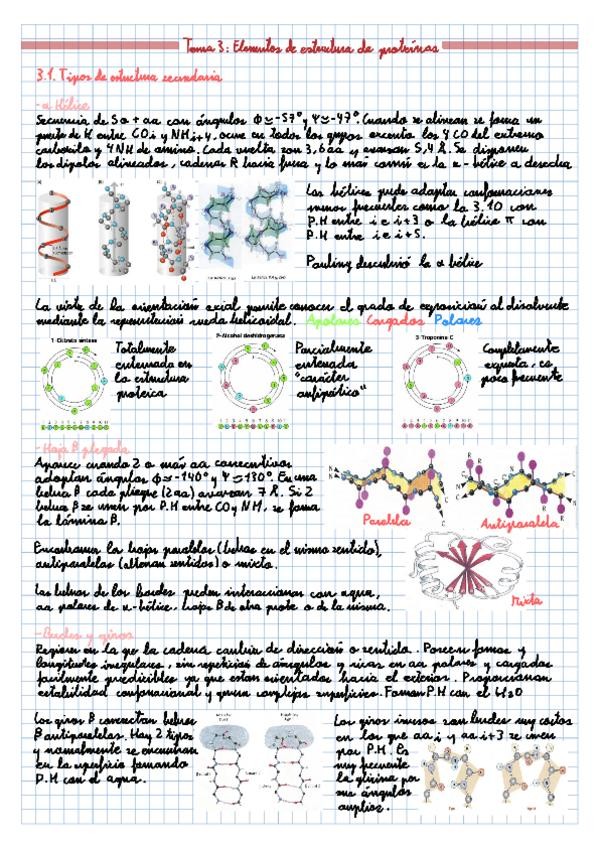 Tema 3: Elementos de estructura de proteínas
3.1. Tipos de estructura secundaria
- α Hélice
Secuencia de 5 o + aa con ángulos Φ≃-57° y Ψ≃-47°. Cuando se alinean se forma un
puente de H entre COi y NHi+4, ocurre en todos los grupos excepto los 4 CO del extremo
carboxilo y 4 NH de amino. Cada vuelta son 3,6 aa y avanzan 5,4 Å. Se disponen
los dipolos alineados, cadenas R hacia fuera y lo más común es la α-hélice a derecha
Las hélices puede adaptar conformaciones
menos frecuentes como la 3.10 con
P.H entre i e i+3 o la hélice π con
P.H entre i e i+5.
Pauling descubrió la α hélice
La vista de la orientación axial permite conocer el grado de exposición al disolvente
mediante la representación rueda helicoidal. Apolares Cargados Polares
1- Citrato sintasa
Totalmente
enterrada en
la estructura
proteica
2- Alcohol deshidrogenasa
Parcialmente
enterrada
"carácter
anfipático"
3- Troponina C
Completamente
expuesta, es
poco frecuente
- Hoja β plegada
Aparece cuando 2 o más aa consecutivos
adoptan ángulos Φ≃-140° y Ψ≃130°. En una
hebra β cada pliegue (2aa) avanzan 7 Å. Si 2
hebra β se unen por P.H entre CO y NH, se forma
la lámina β.
Paralela
Antiparalela
Encontramos la hojas paralelas (hebras en el mismo sentido),
antiparalelas (alternan sentidos) o mixta.
Las hebras de los bordes pueden interaccionar con agua,
aa polares de α-hélice, hojas β de otra proteí o de la misma.
Mixta
- Bucles y giros
Regiones en la que la cadena cambia de dirección o sentido. Poseen formas y
longitudes irregulares, sin repetición de ángulos y ricas en aa polares y cargados
fácilmente predecibles ya que estan orientados hacia el exterior. Proporcionan
estabilidad conformacional y generan complejas superficies. Forman P.H con el H2O
Los giros β conectan hebras
β antiparalelas. Hay 2 tipos
y normalmente se encuentran
en la superficie formando
P.H con el agua.
Los giros inversos son bucles muy cortos
en los que aai y aai+3 se unen
por P.H. Es
muy frecuente
la glicina por
sus ángulos
amplios.